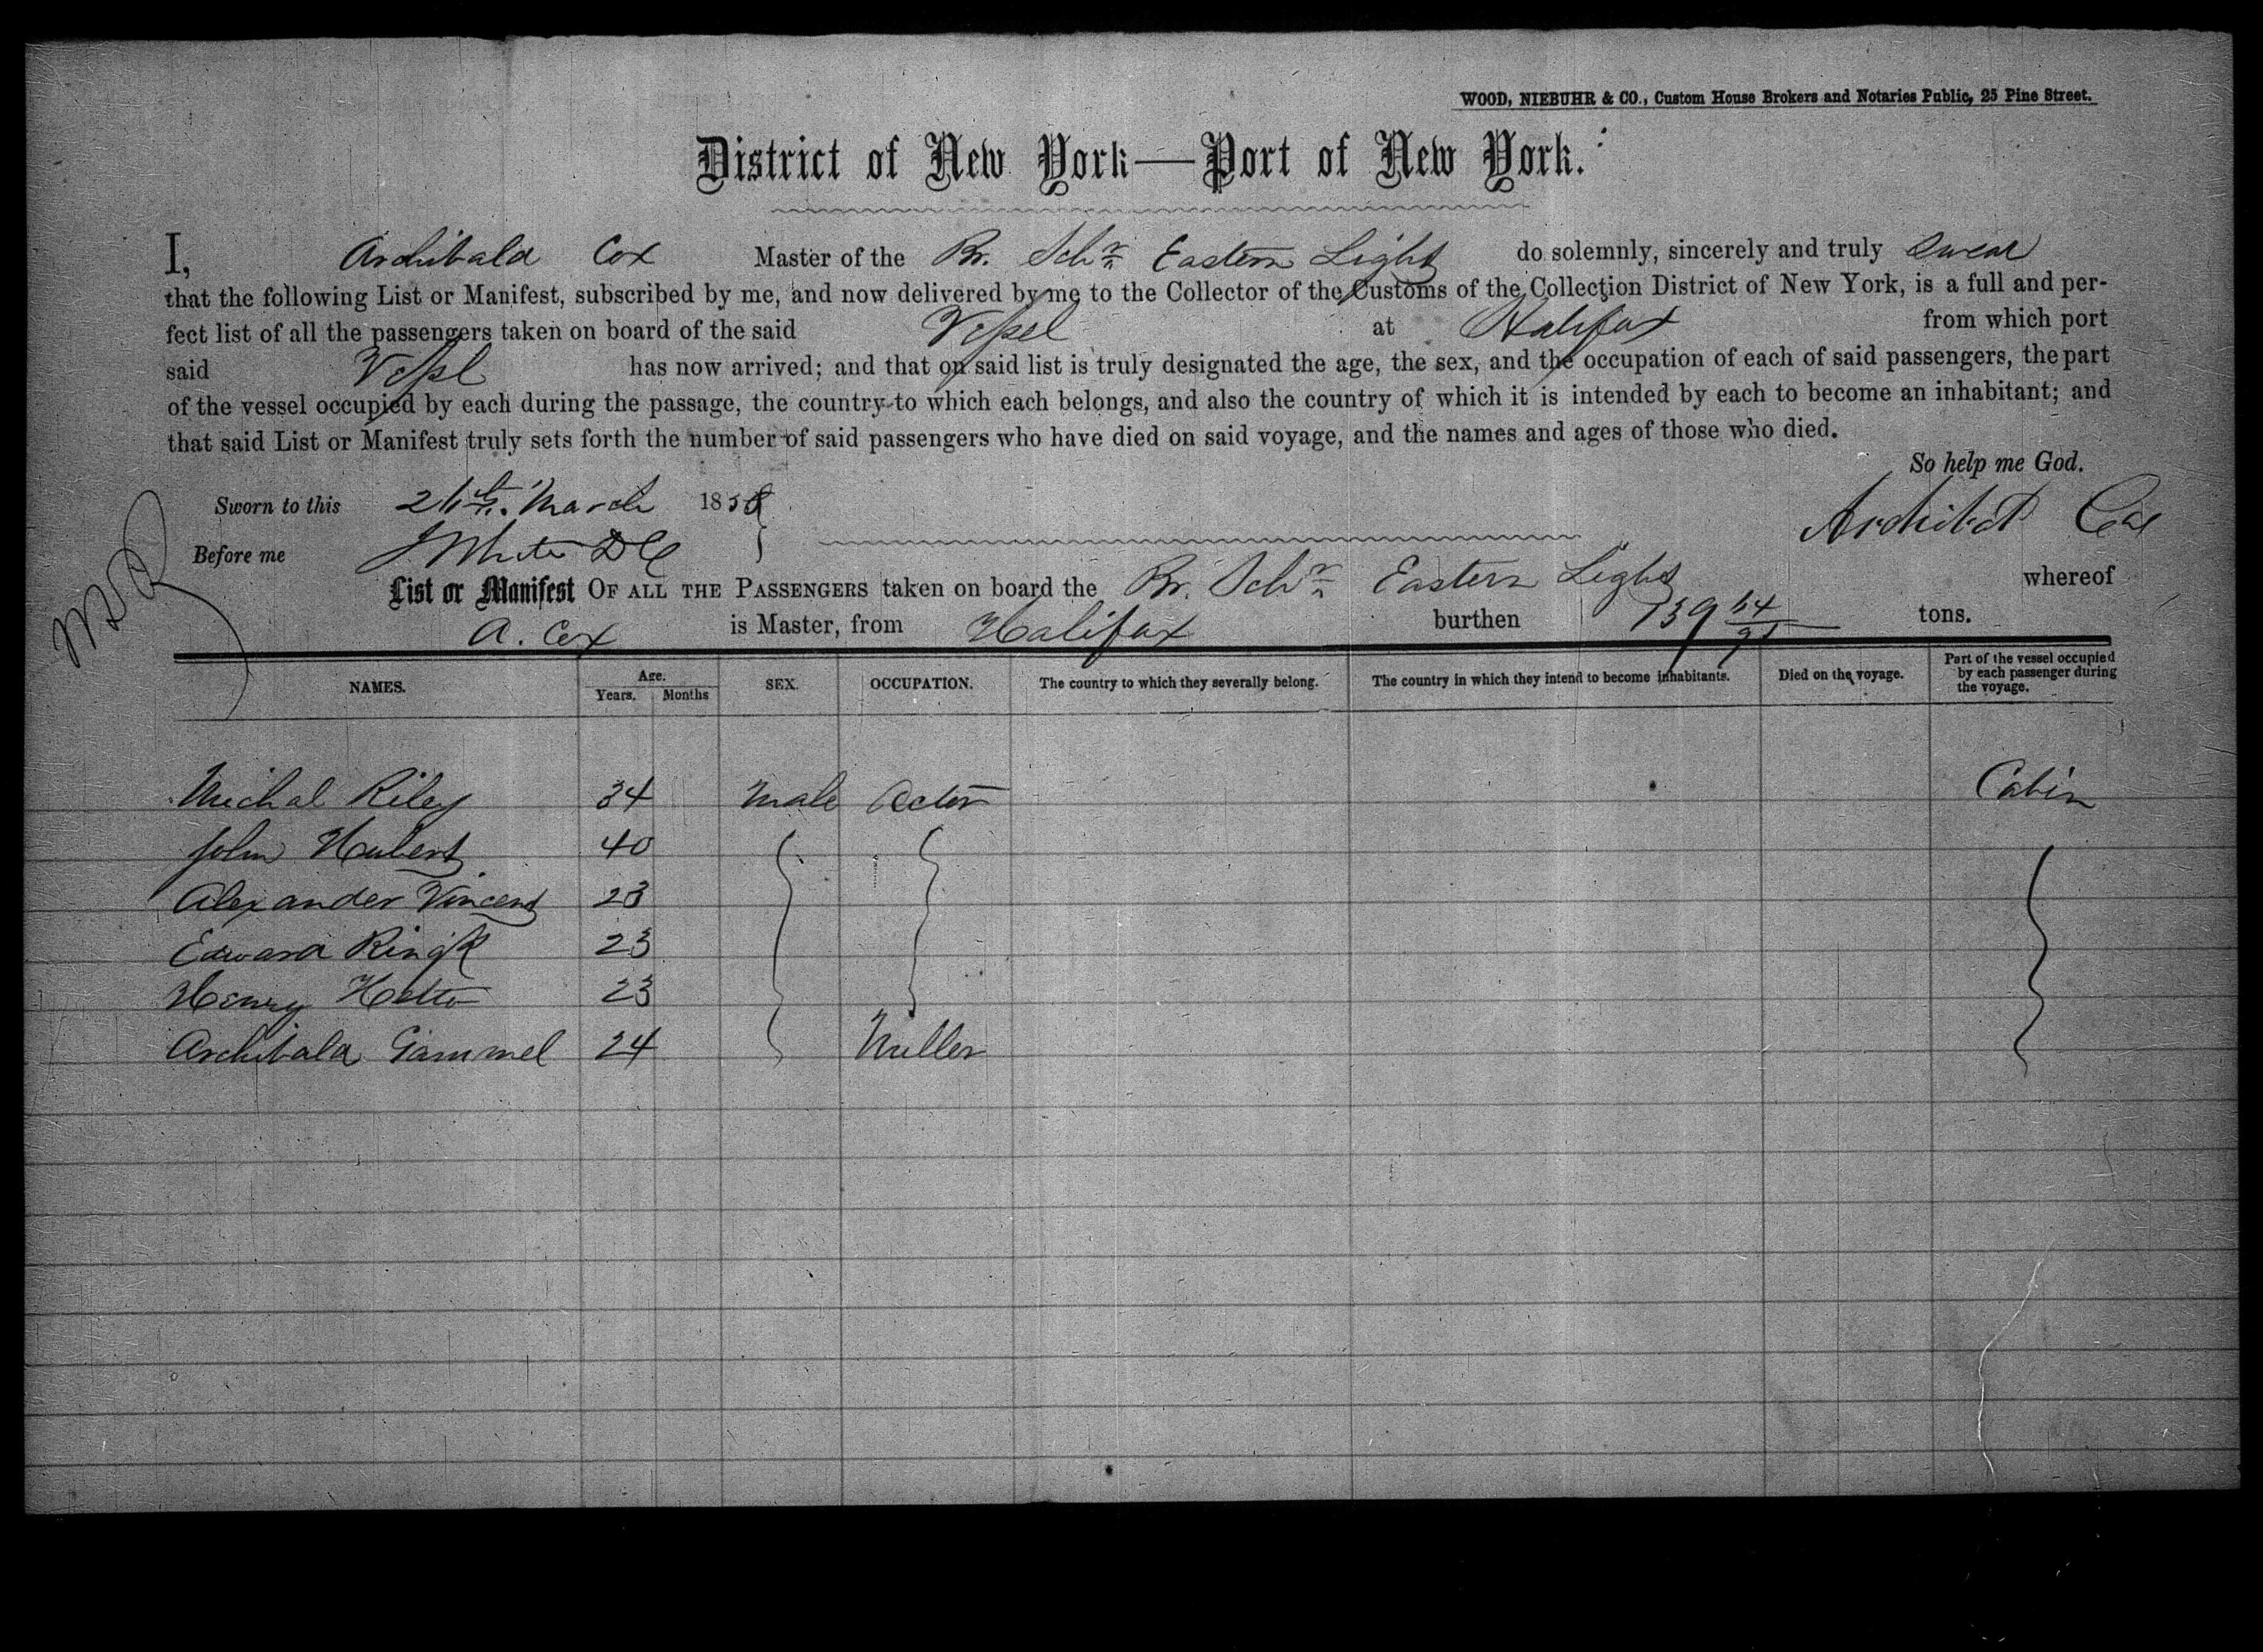 WOOD, NIEBUHR & CO., Custom House Brokers and Notaries Public, 25 Pine Street.
District of New York—Port of New York.
I, Archibald Cox Master of the Br. Schr Eastern Light do solemnly, sincerely and truly swear
that the following List or Manifest, subscribed by me, and now delivered by me to the Collector of the Customs of the Collection District of New York, is a full and per-
fect list of all the passengers taken on board of the said Vessel at Halifax from which port
said Vessel has now arrived; and that on said list is truly designated the age, the sex, and the occupation of each of said passengers, the part
of the vessel occupied by each during the passage, the country to which each belongs, and also the country of which it is intended by each to become an inhabitant; and
that said List or Manifest truly sets forth the number of said passengers who have died on said voyage, and the names and ages of those who died.
So help me God.
Sworn to this March 185
Archibd Cox
Before me J White DC
List or Manifest OF ALL THE PASSENGERS taken on board the Br. Schr Eastern Light whereof
A. Cox is Master, from Halifax burthen 139 64/95 tons.
NAMES. Age. Years. Months SEX. OCCUPATION. The country to which they severally belong. The country in which they intend to become inhabitants. Died on the voyage. Part of the vessel occupied by each passenger during the voyage.
Michal Riley 34 Male Actor Cabin
John Hubert 40
Alexander Vincent 23
Edward 23
Henry 23
Archibald Gammel 24 Miller